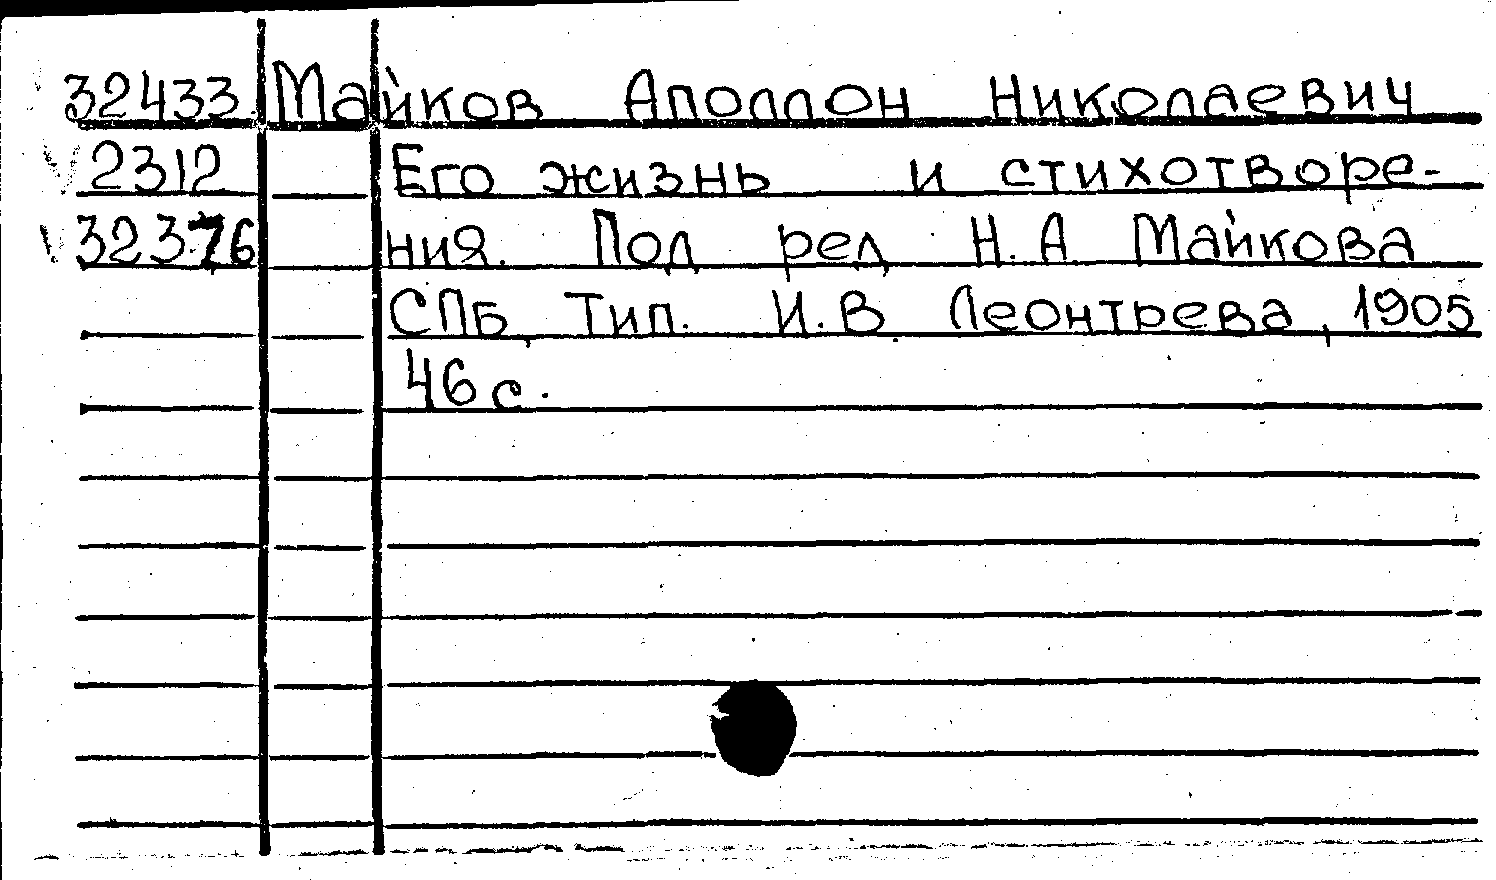 32433 Майков Аполлон Николаевич
2312 Его жизнь и стихотворе-
32376 ния. Под ред Н.А Майкова
СПБ Тип. И.В Леонтьева, 1905
46 с.